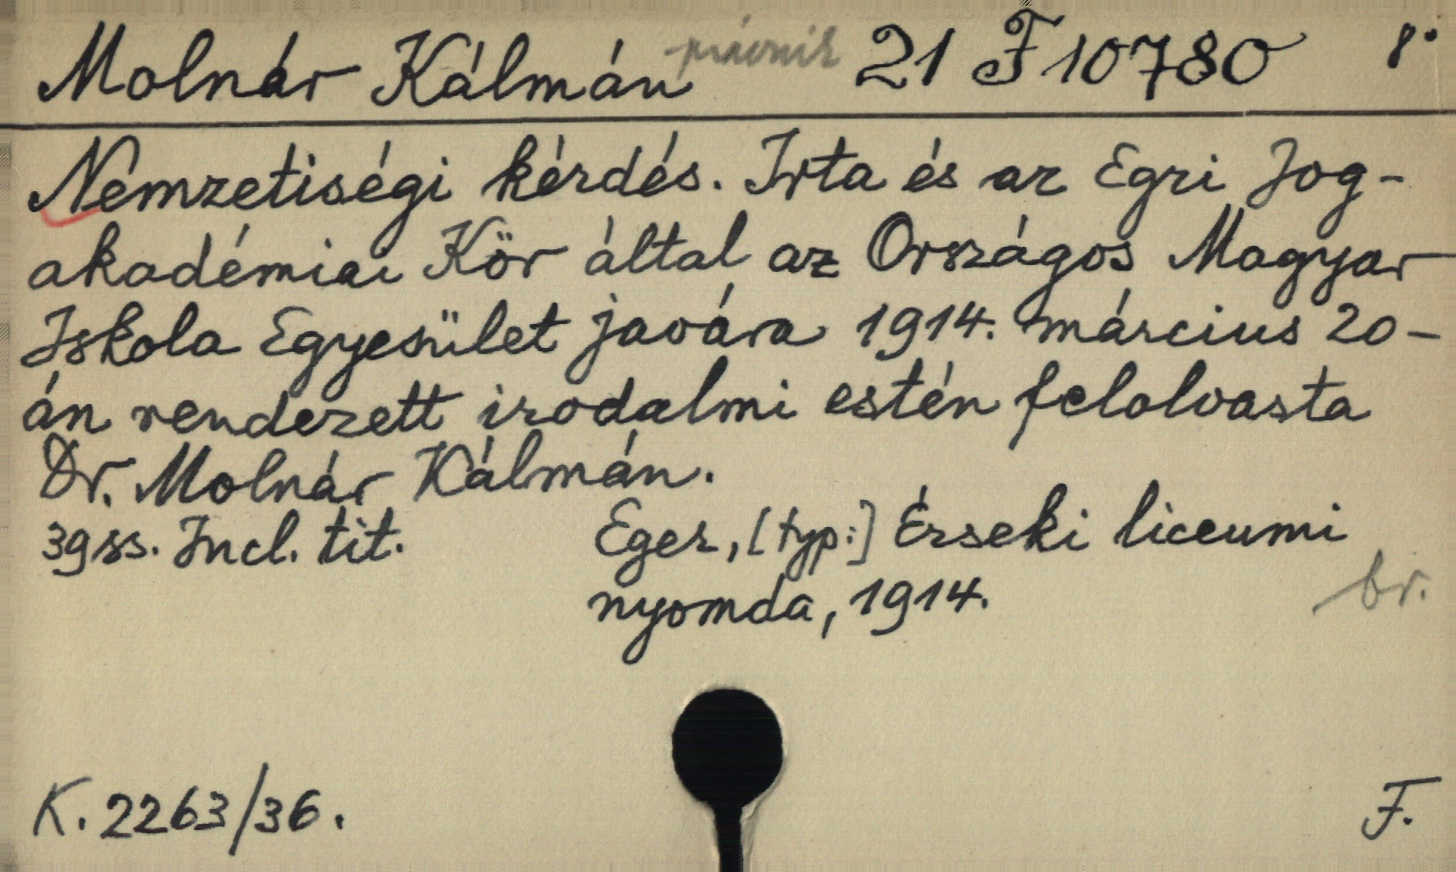 Molnár Kálmán právnik 21 F 10780 8°
Nemzetiségi kérdés. Irta és az Egri Jog-
akadémiai Kör által az Országos Magyar
Iskola Egyesület javára 1914. március 20-
án rendezett irodalmi estén felolvasta
Dr. Molnár Kálmán.
39 ss. Incl. tit. Eger, [typ:] Érseki liceumi
nyomda, 1914. br.
K. 2263/36. F.